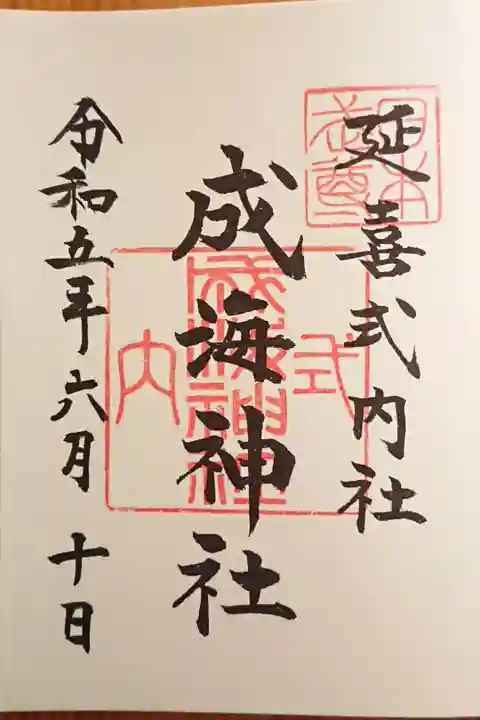 延喜式内社
日本武尊
成海神社
式内
成海神社
令和五年六月十日